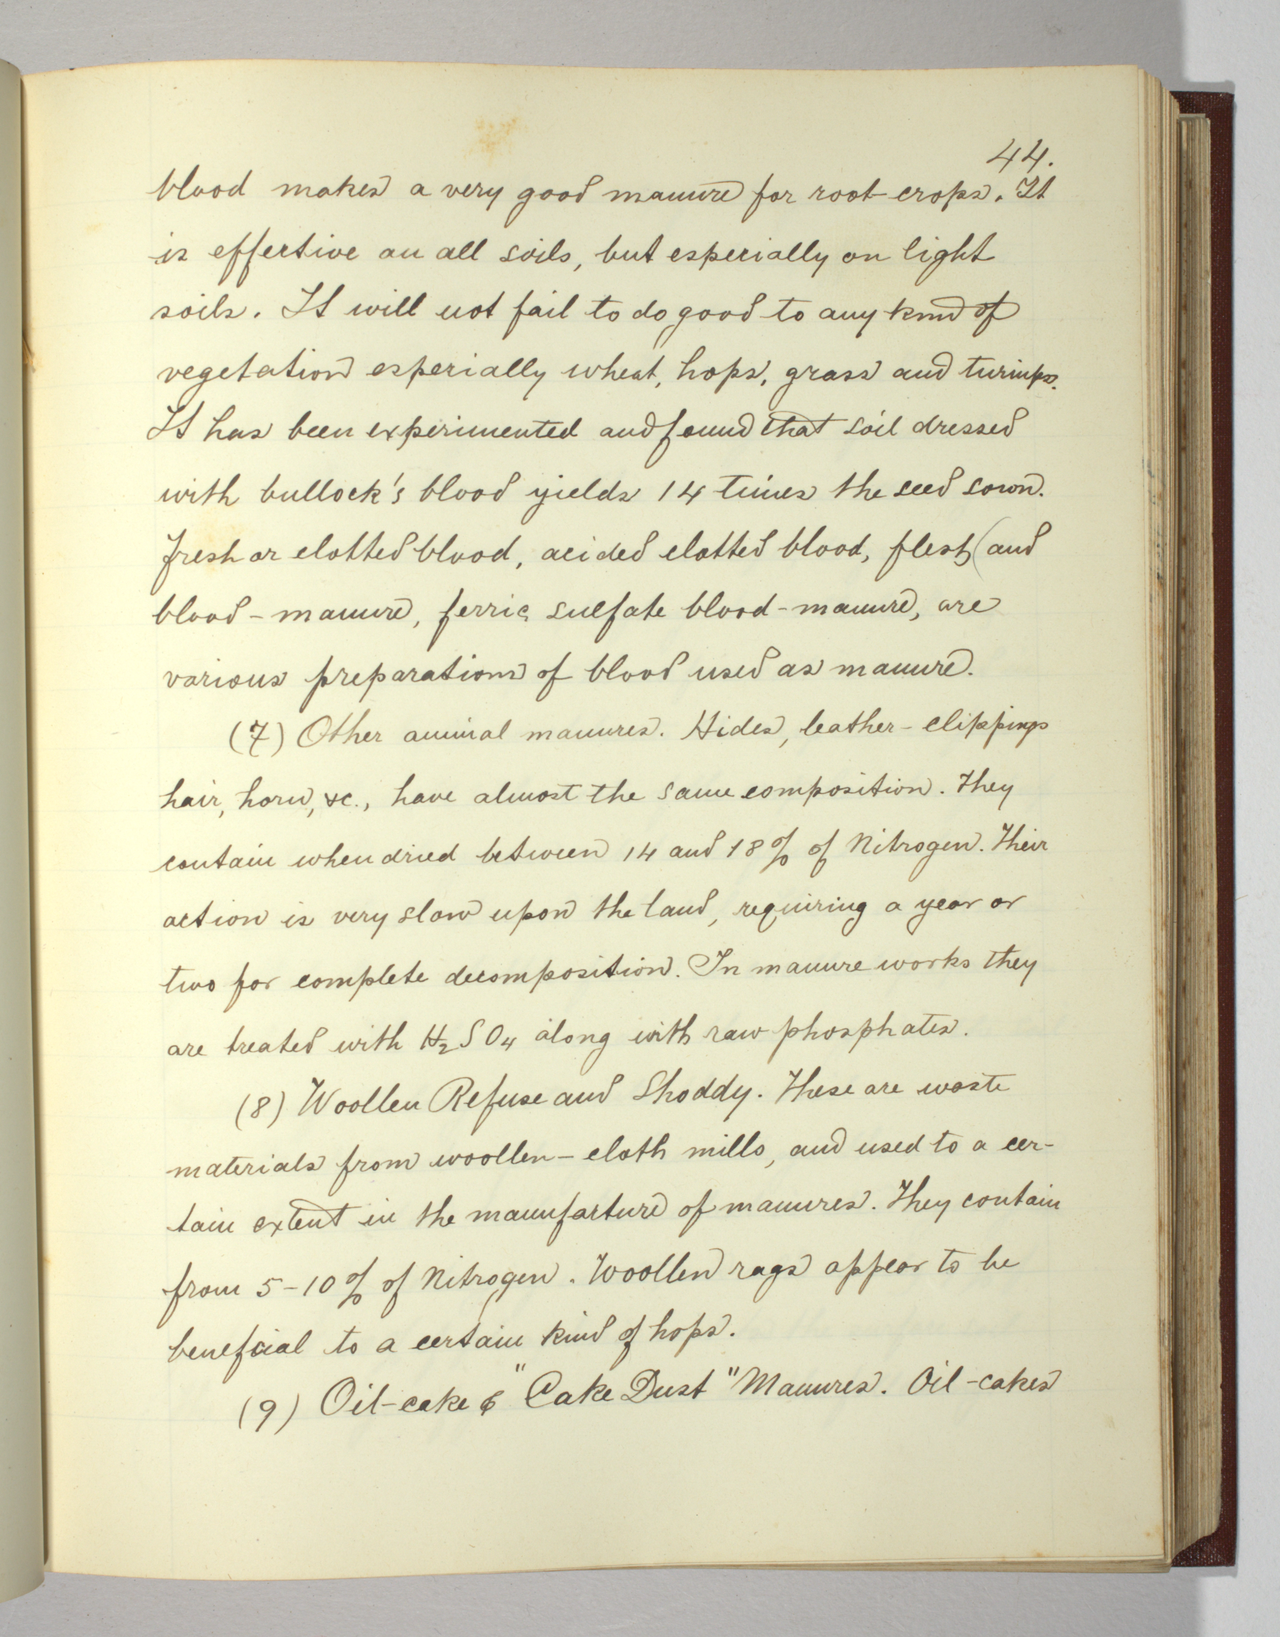 44.
blood makes a very good manure for root-crops. It
is effective on all soils, but especially on light
soils. It will not fail to do good to any kind of
vegetation especially wheat, hops, grass and turinps.
It has been experimented and found that soil dressed
with bullock's blood yields 14 times the seed sown.
Fresh or clotted blood, acided clotted blood, flesh (and
blood-manure, ferric sulfate blood-manure, are
various preparations of blood used as manure.
(7) Other animal manures. Hides, leather-clippings
hair, horn, &c., have almost the same composition. They
contain when dried between 14 and 18% of Nitrogen. Their
action is very slow upon the land, requiring a year or
two for complete decomposition. In manure works they
are treated with H2SO4 along with raw phosphates.
(8) Woollen Refuse and Shoddy. These are waste
materials from woollen-cloth mills, and used to a cer-
tain extent in the manufacture of manures. They contain
from 5-10% of Nitrogen. Woollen rags appear to be
benefcial to a certain kind of hops.
(9) Oil-cake & "Cake Dust" Manures. Oil-cakes